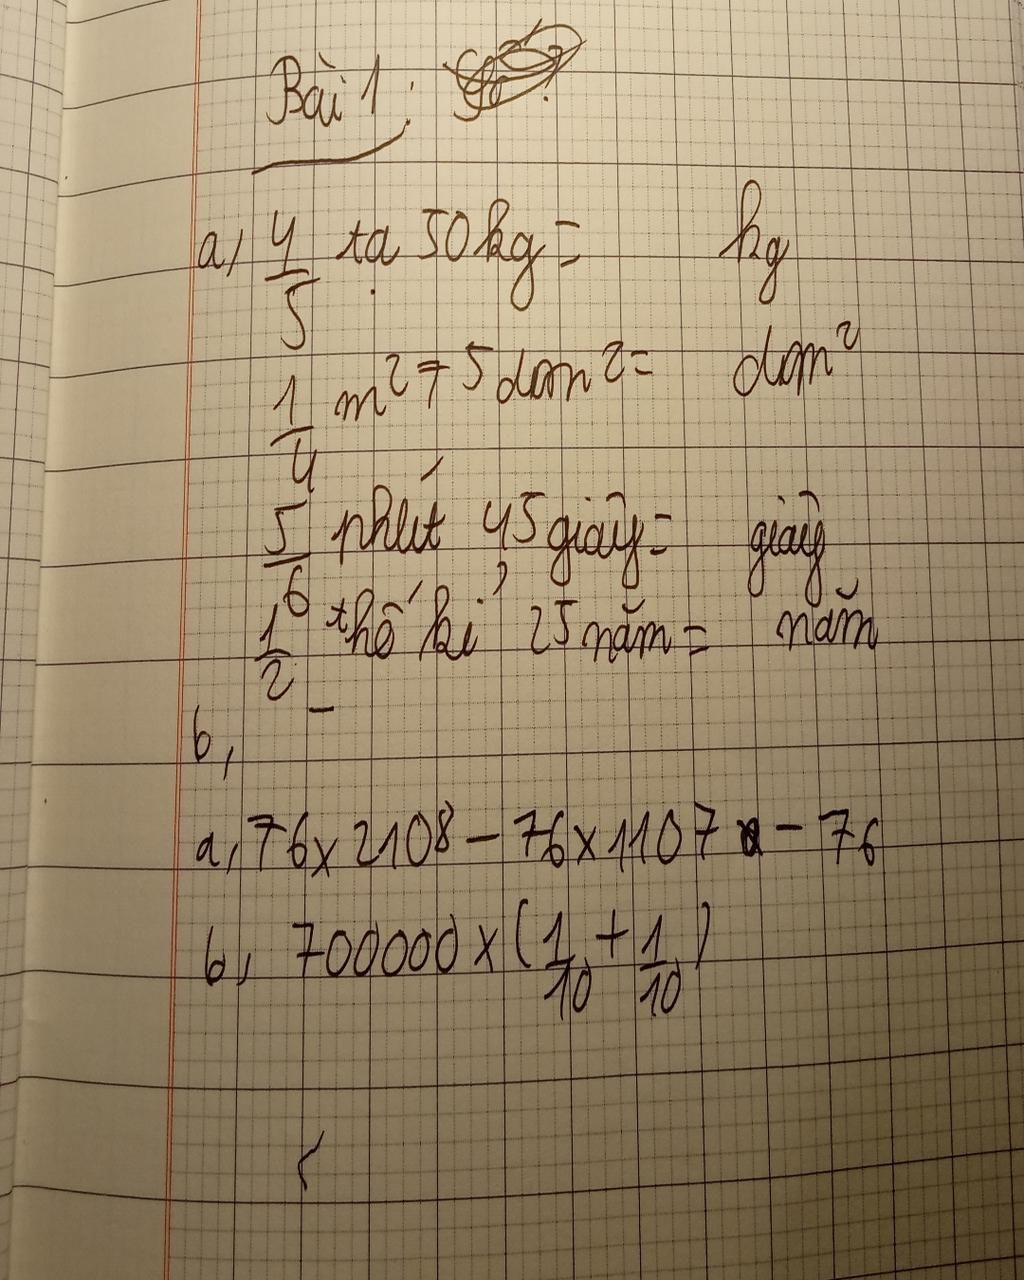 Bài 1:
a, 4/5 tạ 50kg = kg
1/4 m² 75 dm² = dm²
5/6 phút 45 giây = giây
1/2 thế kỉ 25 năm = năm
b,
a, 76 x 2108 - 76 x 1107 - 76
b, 700000 x (1/10 + 1/10)